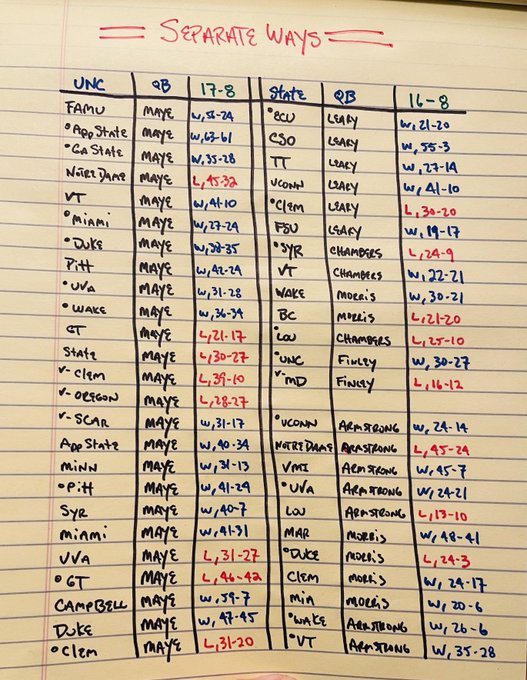 SEPARATE WAYS
UNC QB 17-8 STATE QB 16-8
FAMU MAYE W,56-24 •ECU LEARY W,21-20
•App State MAYE W,63-61 CSO LEARY W,55-3
•GA State MAYE W,35-28 TT LEARY W,27-14
Notre Dame MAYE L,45-32 UCONN LEARY W,41-10
VT MAYE W,41-10 •Clem LEARY L,30-20
•Miami MAYE W,27-24 FSU LEARY W,19-17
•Duke MAYE W,38-35 •SYR CHAMBERS L,24-9
Pitt MAYE W,42-24 VT CHAMBERS W,22-21
•UVA MAYE W,31-28 WAKE MORRIS W,30-21
•WAKE MAYE W,36-34 BC MORRIS L,21-20
GT MAYE L,21-17 •LOU CHAMBERS L,25-10
State MAYE L,30-27 •UNC FINLEY W,30-27
v-Clem MAYE L,39-10 v-MD FINLEY L,16-12
v-OREGON MAYE L,28-27
v-SCAR MAYE W,31-17 •UCONN ARMSTRONG W,24-14
App State MAYE W,40-34 NOTRE DAME ARMSTRONG L,45-24
MINN MAYE W,31-13 VMI ARMSTRONG W,45-7
•Pitt MAYE W,41-24 •UVA ARMSTRONG W,24-21
SYR MAYE W,40-7 LOU ARMSTRONG L,13-10
MIAMI MAYE W,41-31 MAR MORRIS W,48-41
UVA MAYE L,31-27 •DUKE MORRIS L,24-3
•GT MAYE L,46-42 CLEM MORRIS W,24-17
CAMPBELL MAYE W,59-7 MIA MORRIS W,20-6
DUKE MAYE W,47-45 •WAKE ARMSTRONG W,26-6
•Clem MAYE L,31-20 •VT ARMSTRONG W,35-28